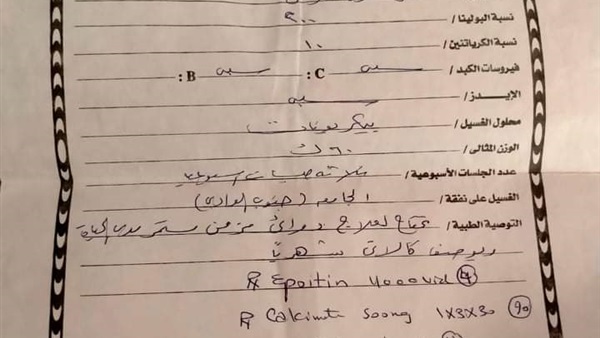 نسبة البولينا / ٢٠٠
نسبة الكرياتنين / ١٠
فيروسات الكبد / سلبى C : سلبى B :
الإيدز / سلبى
محلول الغسيل / بيكربونات
الوزن المثالى / ٦٠ ك
عدد الجلسات الأسبوعية / ثلاثه جلسات اسبوعيا
الغسيل على نفقة / الجامعه (جنوب الوادى)
التوصية الطبية / يحتاج لعلاج دوائى مزمن مستمر مدى الحياة
ويوصف كالاتى شهريا
R Epoitin 4000 vial ④
R Calcimate 500mg 1x3x30 (90)